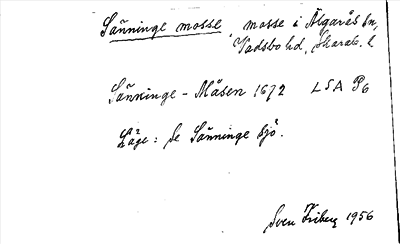 Sänninge mosse, mosse i Älgarås sn,
Vadsbo hd, Skarab. l
Sänkinge-Måsen 1672 LSA P6
Läge: Se Sänninge sjö.
Sven Friberg 1956